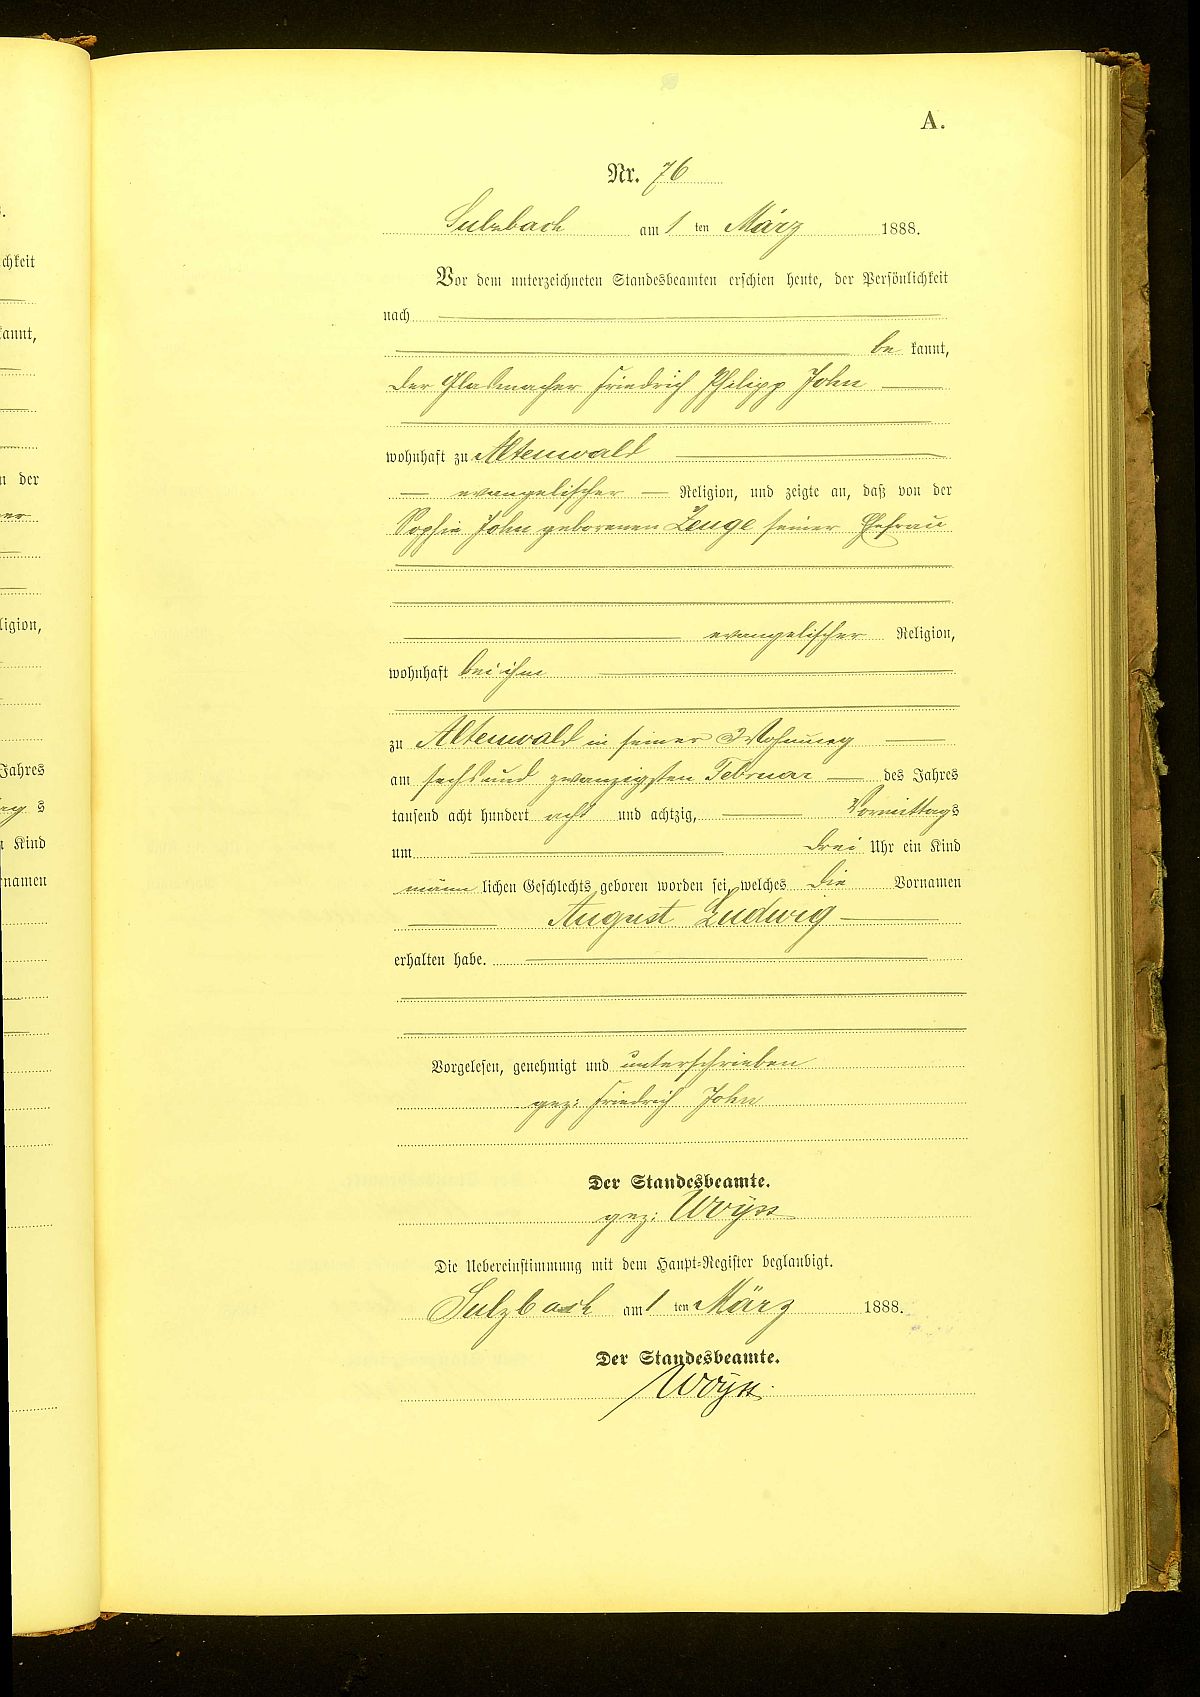 A.
Nr. 76
Sulzbach am 1 ten März 1888.
Vor dem unterzeichneten Standesbeamten erschien heute, der Persönlichkeit
nach
be kannt,
der Glasmacher Friedrich Philipp John
wohnhaft zu Altenwald
evangelischer Religion, und zeigte an, daß von der
Sophie John geborenen Zeuge seiner Ehefrau
evangelischer Religion,
wohnhaft bei ihm
zu Altenwald in seiner Wohnung
am sechs und zwanzigsten Februar des Jahres
tausend acht hundert acht und achtzig, Vormittags
um drei Uhr ein Kind
männ lichen Geschlechts geboren worden sei, welches die Vornamen
August Ludwig
erhalten habe.
Vorgelesen, genehmigt und unterschrieben
gez: Friedrich John
Der Standesbeamte.
gez:
Die Uebereinstimmung mit dem Haupt-Register beglaubigt.
Sulzbach am 1 ten März 1888.
Der Standesbeamte.
chkeit
kannt,
n der
ligion,
Jahres
s
Kind
rnamen